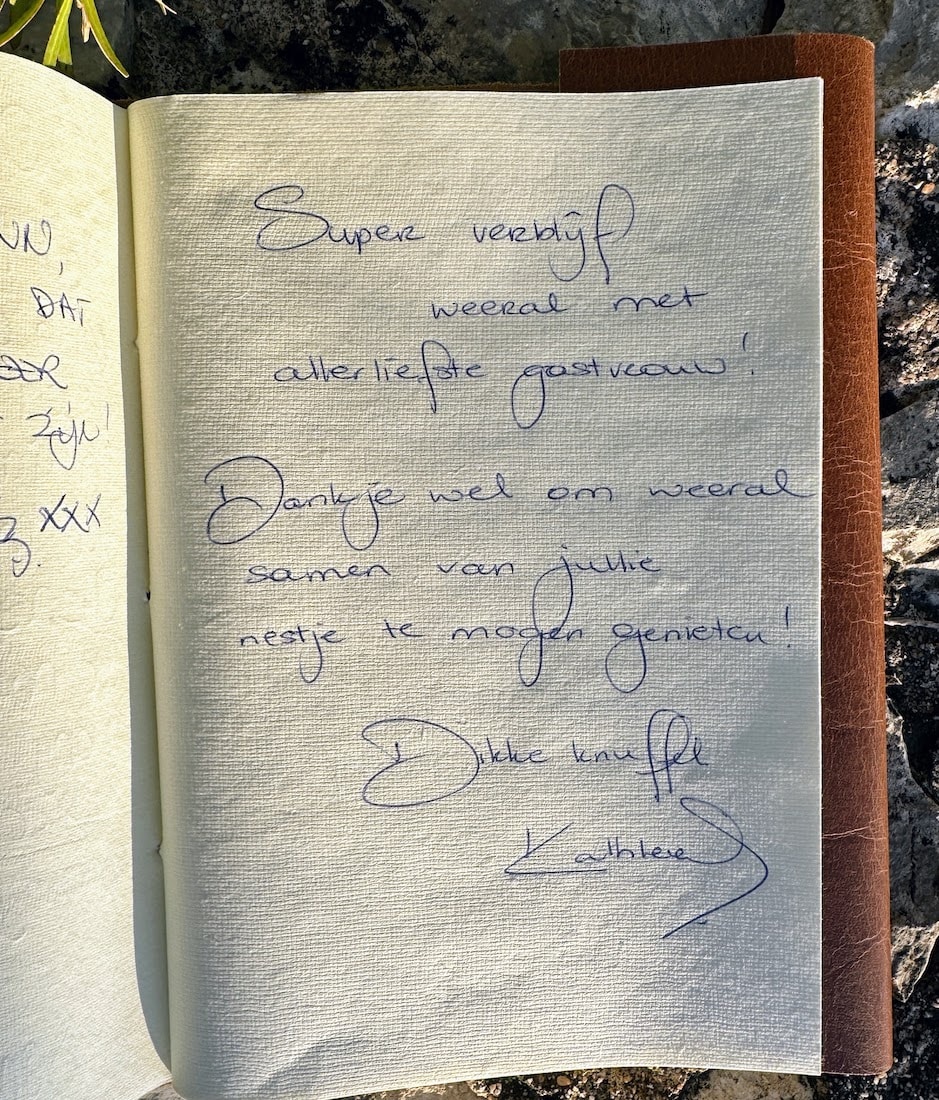 NN,
DAT
zijn!
xxx
Super verblijf
weeral met
allerliefste gastvrouw!
Dankje wel om weeral
samen van jullie
nestje te mogen genieten!
Dikke knuffel
Kathleen